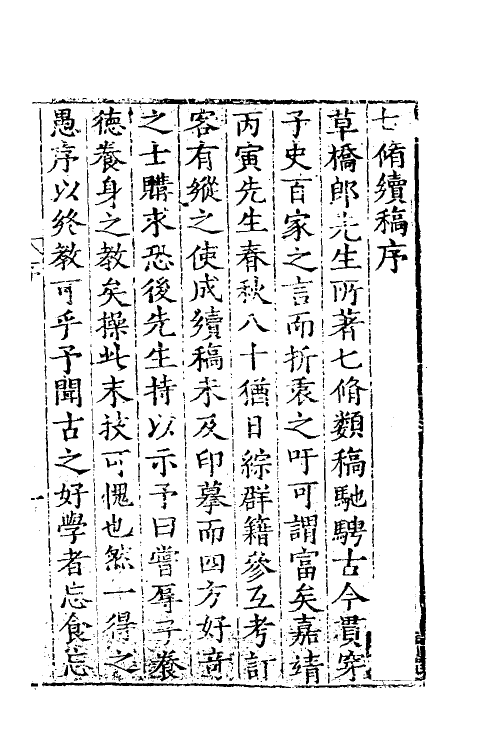 七脩續稿序
草橋郎先生所著七脩類稿馳騁古今貫穿
子史百家之言而折衷之吁可謂富矣嘉靖
丙寅先生春秋八十猶日綜群籍參互考訂
客有縱之使成續稿未及印摹而四方好竒
之士購求恐後先生持以示予曰嘗辱子養
徳養身之教矣操此末技可愧也然一得之
愚序以終教可乎予聞古之好學者忘食忘